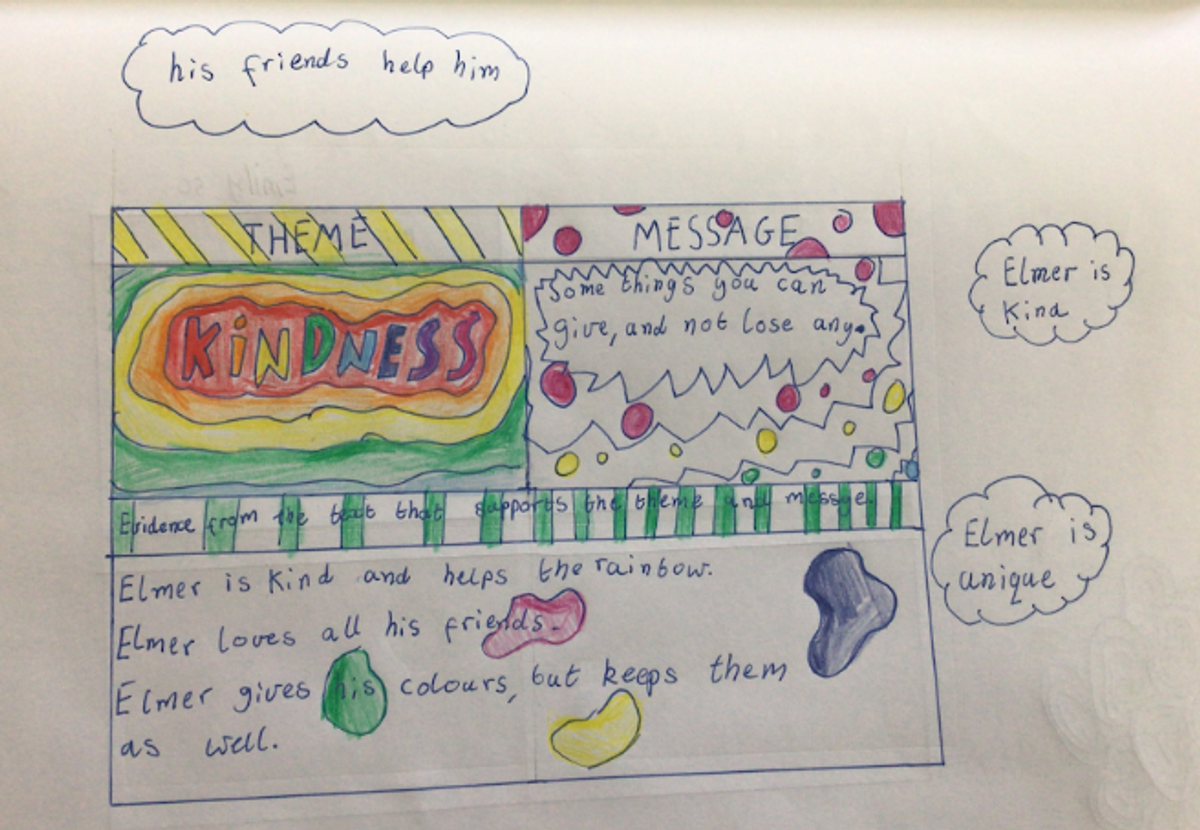 his friends help him
THEME
MESSAGE
KiNDNESS
Some things you can
give, and not lose any.
Elmer is
Kind
Evidence from the text that supports the theme and messsge.
Elmer is
unique
Elmer is Kind and helps the rainbow.
Elmer loves all his friends.
Elmer gives his colours, but keeps them
as well.